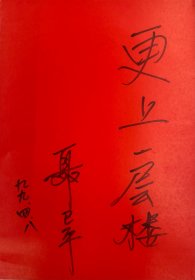 更上一层楼
聂卫平
九九四八